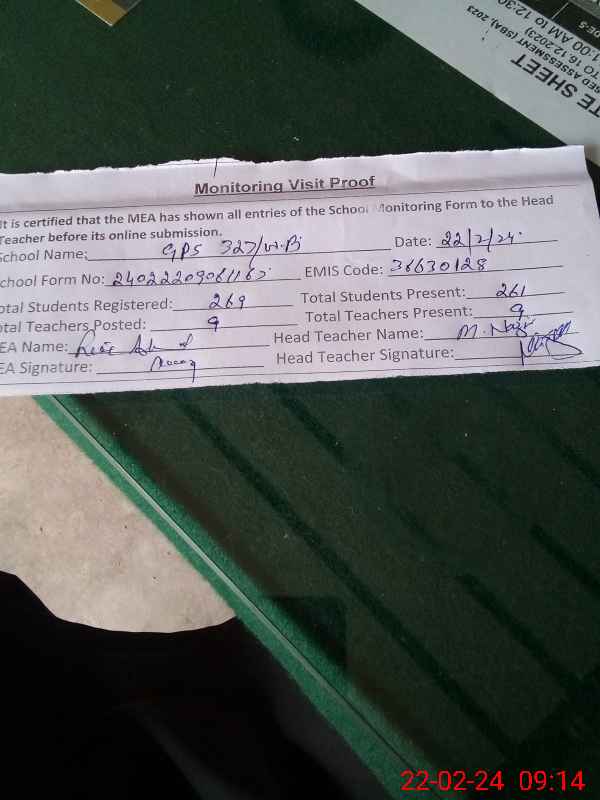 TE SHEET
SED ASSESSMENT (SBA), 2023
TO 16.12.2023)
1:00 AM to 12:30
DE-5
Monitoring Visit Proof
It is certified that the MEA has shown all entries of the School Monitoring Form to the Head
Teacher before its online submission.
School Name: GPS 327/W.B Date: 22/2/24
chool Form No: EMIS Code: 36630128
otal Students Registered: 269 Total Students Present: 261
otal Teachers Posted: 9 Total Teachers Present: 9
EA Name: Head Teacher Name: M.
EA Signature: Head Teacher Signature:
22-02-24 09:14